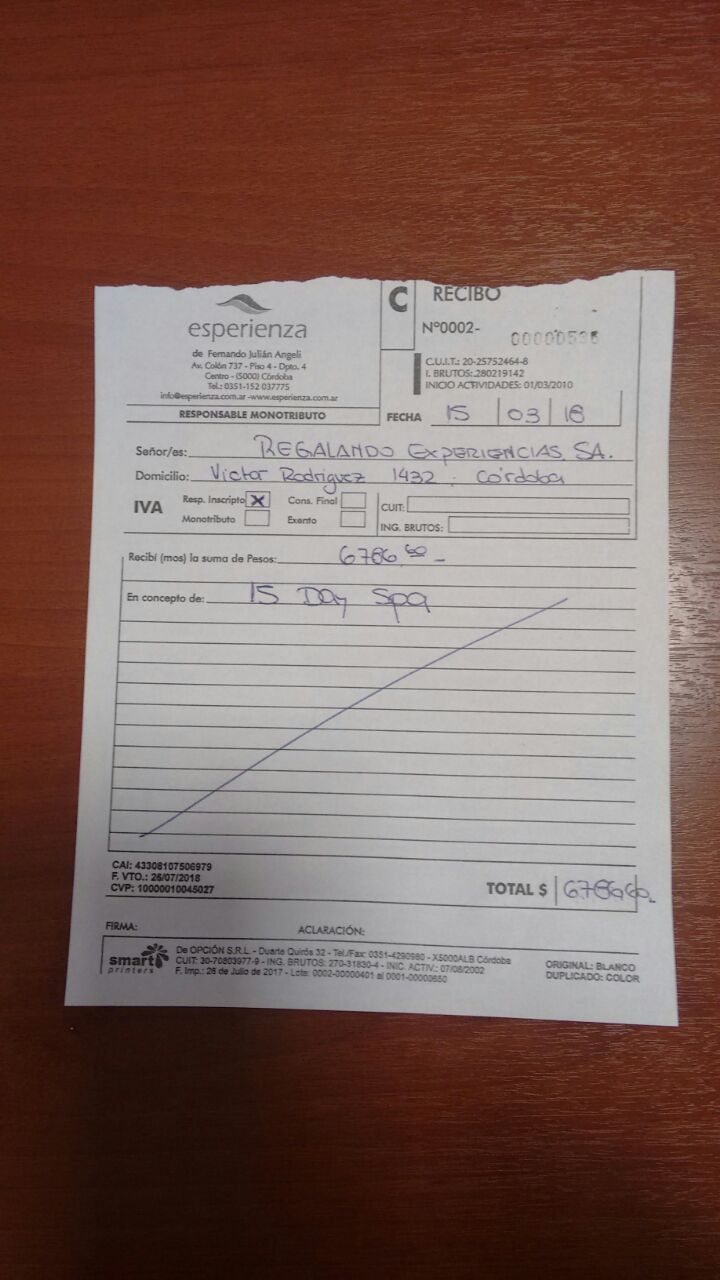 C RECIBO
esperienza
Nº0002- 00000535
de Fernando Julián Angeli
Av. Colón 737 - Piso 4 - Dpto. 4
Centro - (5000) Córdoba
Tel.: 0351-152 037775
info@esperienza.com.ar -www.esperienza.com.ar
C.U.I.T.: 20-25752464-8
I. BRUTOS: 280219142
INICIO ACTIVIDADES: 01/03/2010
RESPONSABLE MONOTRIBUTO
FECHA 15 03 18
Señor/es: REGALANDO EXPERIENCIAS SA.
Domicilio: Victor Rodriguez 1432. Córdoba
IVA Resp. Inscripto X Cons. Final CUIT:
Monotributo Exento ING. BRUTOS:
Recibí (mos) la suma de Pesos: 6786,60
En concepto de: 15 Day Spa
CAI: 43308107506979
F. VTO.: 26/07/2018
CVP: 10000010045027
TOTAL $ 6786,60
FIRMA: ACLARACIÓN:
smart printers
De OPCIÓN S.R.L. - Duarte Quirós 32 - Tel./Fax: 0351-4290980 - X5000ALB Córdoba
CUIT: 30-70803977-9 - ING. BRUTOS: 270-31830-4 - INIC. ACTIV.: 07/08/2002
F. Imp.: 26 de Julio de 2017 - Lote: 0002-00000401 al 0001-00000650
ORIGINAL: BLANCO
DUPLICADO: COLOR